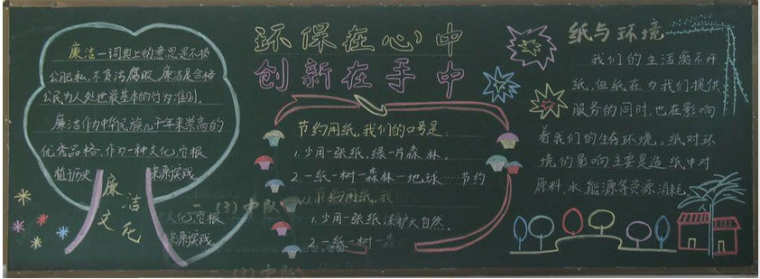 廉洁一词典上的意思是不损
公肥私,不贪污腐败。廉洁是合格
公民为人处世最基本的行为准则。
廉洁作为中华民族几千年来崇高的
优秀品格,作为一种文化,守根
植历史
廉洁
文化
环保在心中
创新在手中
节约用纸,我们的口号是
1.少用一张纸,绿一片森林。
2.一纸一树一森林一地球……节约
节约用纸,我
1.少用一张纸
大自然。
2.一纸一树一森
(3)中队
纸与环境
我们的生活离不开
纸,但纸在为我们提供
服务的同时,也在影响
着我们的生存环境。纸对环
境的影响主要是造纸中对
原料、水、能源等资源消耗